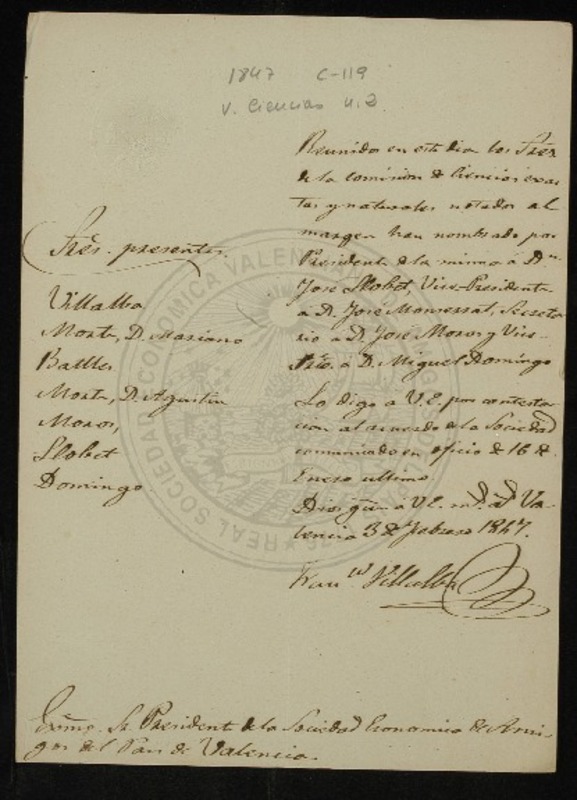 1847 C-119
V. Ciencias n.2
Sres. presentes.
Villalba
Monte, D. Mariano
Batlles
Monte, D. Agustin
Moros,
Llobet
Domingo.
Reunidos en este dia los Sres
de la comision de Ciencias exac-
tas y naturales notados al
margen han nombrado por
Presidente de la misma á Dn.
José Llobet Vice-Presidente
á D. José Monserrat, Secreta-
rio á D. José Moros y Vice-
Srio. á D. Miguel Domingo
Lo digo á V.E. por contesta-
cion al acuerdo de la Sociedad
comunicado en oficio de 16 de
Enero ultimo.
Dios gue. á V.E. ms. as. Va-
lencia 3 de febrero 1847.
Franco. Villalba
Exmo. Sr. Presidente de la Sociedad Economica de Ami-
gos del Pais de Valencia.
REAL SOCIEDAD ECONOMICA VALENCIANA